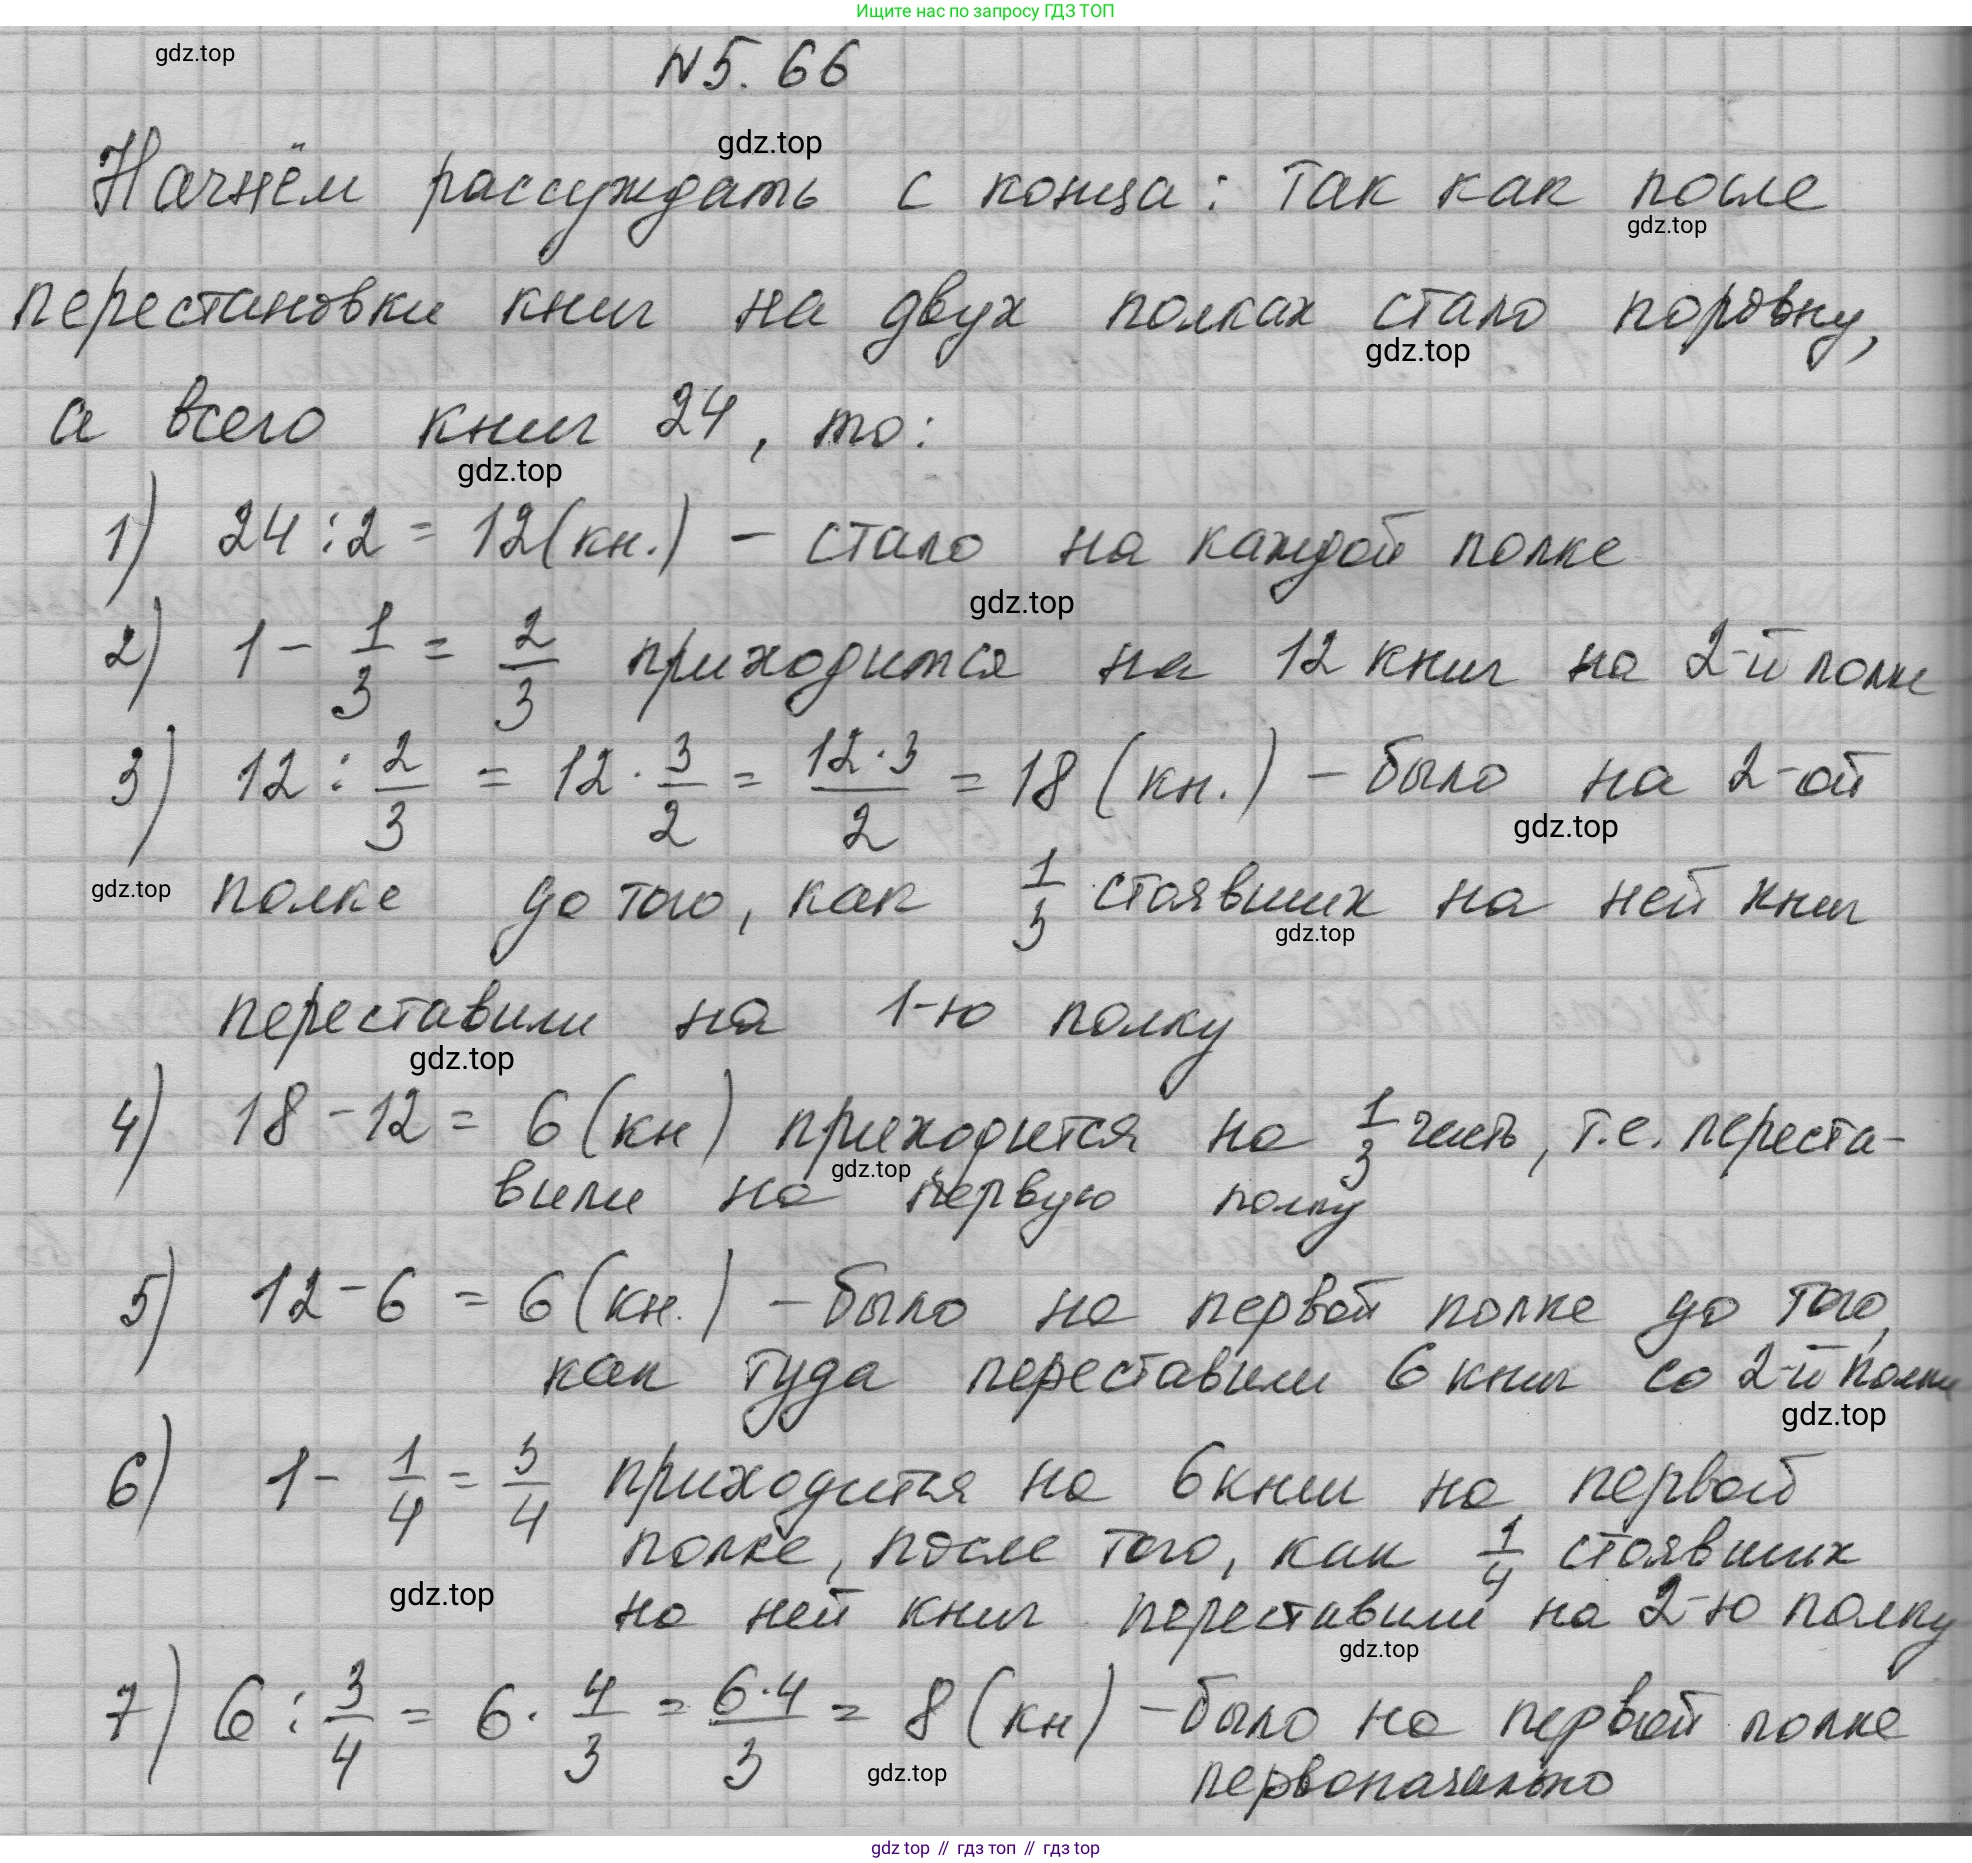 Ищите нас по запросу ГДЗ ТОП
gdz.top
N 5. 66
gdz.top
Начнём рассуждать с конца: Так как после
gdz.top
перестановки книг на двух полках стало поровну,
gdz.top
а всего книг 24, то:
gdz.top
1) 24 : 2 = 12 (кн.) – стало на каждой полке
gdz.top
2) 1 - 1/3 = 2/3 приходится на 12 книг на 2-й полке
3) 12 : 2/3 = 12 · 3/2 = 12·3/2 = 18 (кн.) – было на 2-ой
gdz.top
gdz.top
полке до того, как 1/3 стоявших на ней книг
gdz.top
переставили на 1-ю полку
gdz.top
4) 18 - 12 = 6 (кн) приходится на 1/3 часть, т.е. переста-
gdz.top
вили на первую полку
5) 12 - 6 = 6 (кн.) – было на первой полке до того,
как туда переставили 6 книг со 2-й полки
gdz.top
6) 1 - 1/4 = 3/4 приходится на 6 книг на первой
полке, после того, как 1/4 стоявших
gdz.top
на ней книг переставили на 2-ю полку
gdz.top
7) 6 : 3/4 = 6 · 4/3 = 6·4/3 = 8 (кн) – было на первой полке
gdz.top
первоначально
gdz top // гдз топ // гдз top